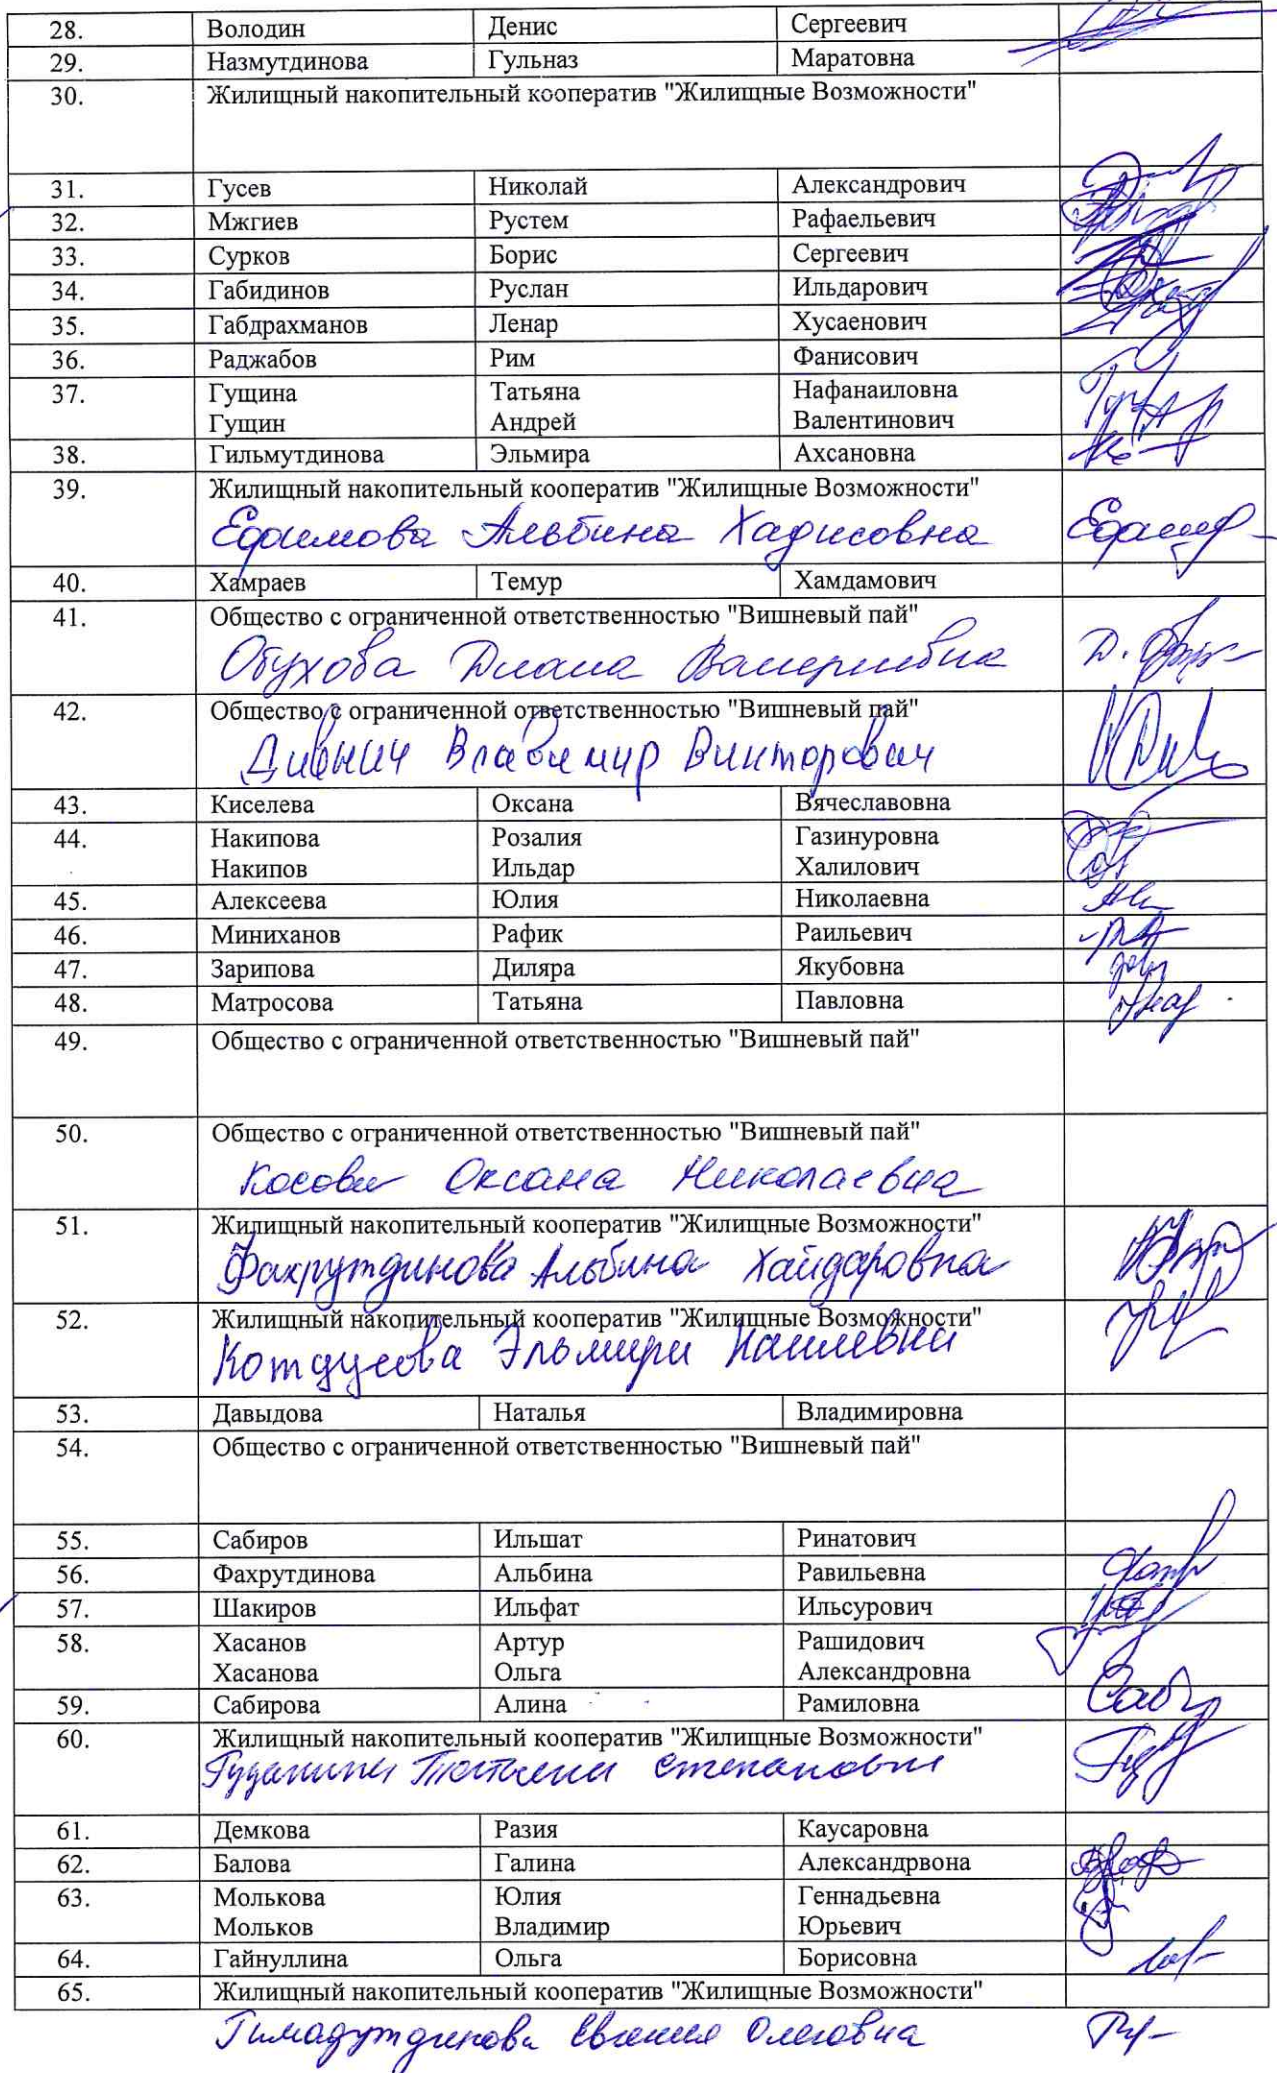 28. Володин Денис Сергеевич
29. Назмутдинова Гульназ Маратовна
30. Жилищный накопительный кооператив "Жилищные Возможности"
31. Гусев Николай Александрович
32. Мжгиев Рустем Рафаельевич
33. Сурков Борис Сергеевич
34. Габидинов Руслан Ильдарович
35. Габдрахманов Ленар Хусаенович
36. Раджабов Рим Фанисович
37. Гущина Татьяна Нафанаиловна
Гущин Андрей Валентинович
38. Гильмутдинова Эльмира Ахсановна
39. Жилищный накопительный кооператив "Жилищные Возможности"
Ефимова Альбина Хадисовна
40. Хамраев Темур Хамдамович
41. Общество с ограниченной ответственностью "Вишневый пай"
Обухова Диана Валерьевна
42. Общество с ограниченной ответственностью "Вишневый пай"
Дивнич Владимир Викторович
43. Киселева Оксана Вячеславовна
44. Накипова Розалия Газинуровна
Накипов Ильдар Халилович
45. Алексеева Юлия Николаевна
46. Миниханов Рафик Раильевич
47. Зарипова Диляра Якубовна
48. Матросова Татьяна Павловна
49. Общество с ограниченной ответственностью "Вишневый пай"
50. Общество с ограниченной ответственностью "Вишневый пай"
Косова Оксана Николаевна
51. Жилищный накопительный кооператив "Жилищные Возможности"
Фахрутдинова Альбина Хайдаровна
52. Жилищный накопительный кооператив "Жилищные Возможности"
Котдусова Эльмира Наилевна
53. Давыдова Наталья Владимировна
54. Общество с ограниченной ответственностью "Вишневый пай"
55. Сабиров Ильшат Ринатович
56. Фахрутдинова Альбина Равильевна
57. Шакиров Ильфат Ильсурович
58. Хасанов Артур Рашидович
Хасанова Ольга Александровна
59. Сабирова Алина Рамиловна
60. Жилищный накопительный кооператив "Жилищные Возможности"
Татьяна Степановна
61. Демкова Разия Каусаровна
62. Балова Галина Александрвона
63. Молькова Юлия Геннадьевна
Мольков Владимир Юрьевич
64. Гайнуллина Ольга Борисовна
65. Жилищный накопительный кооператив "Жилищные Возможности"
Гимадутдинова Евгения Олеговна